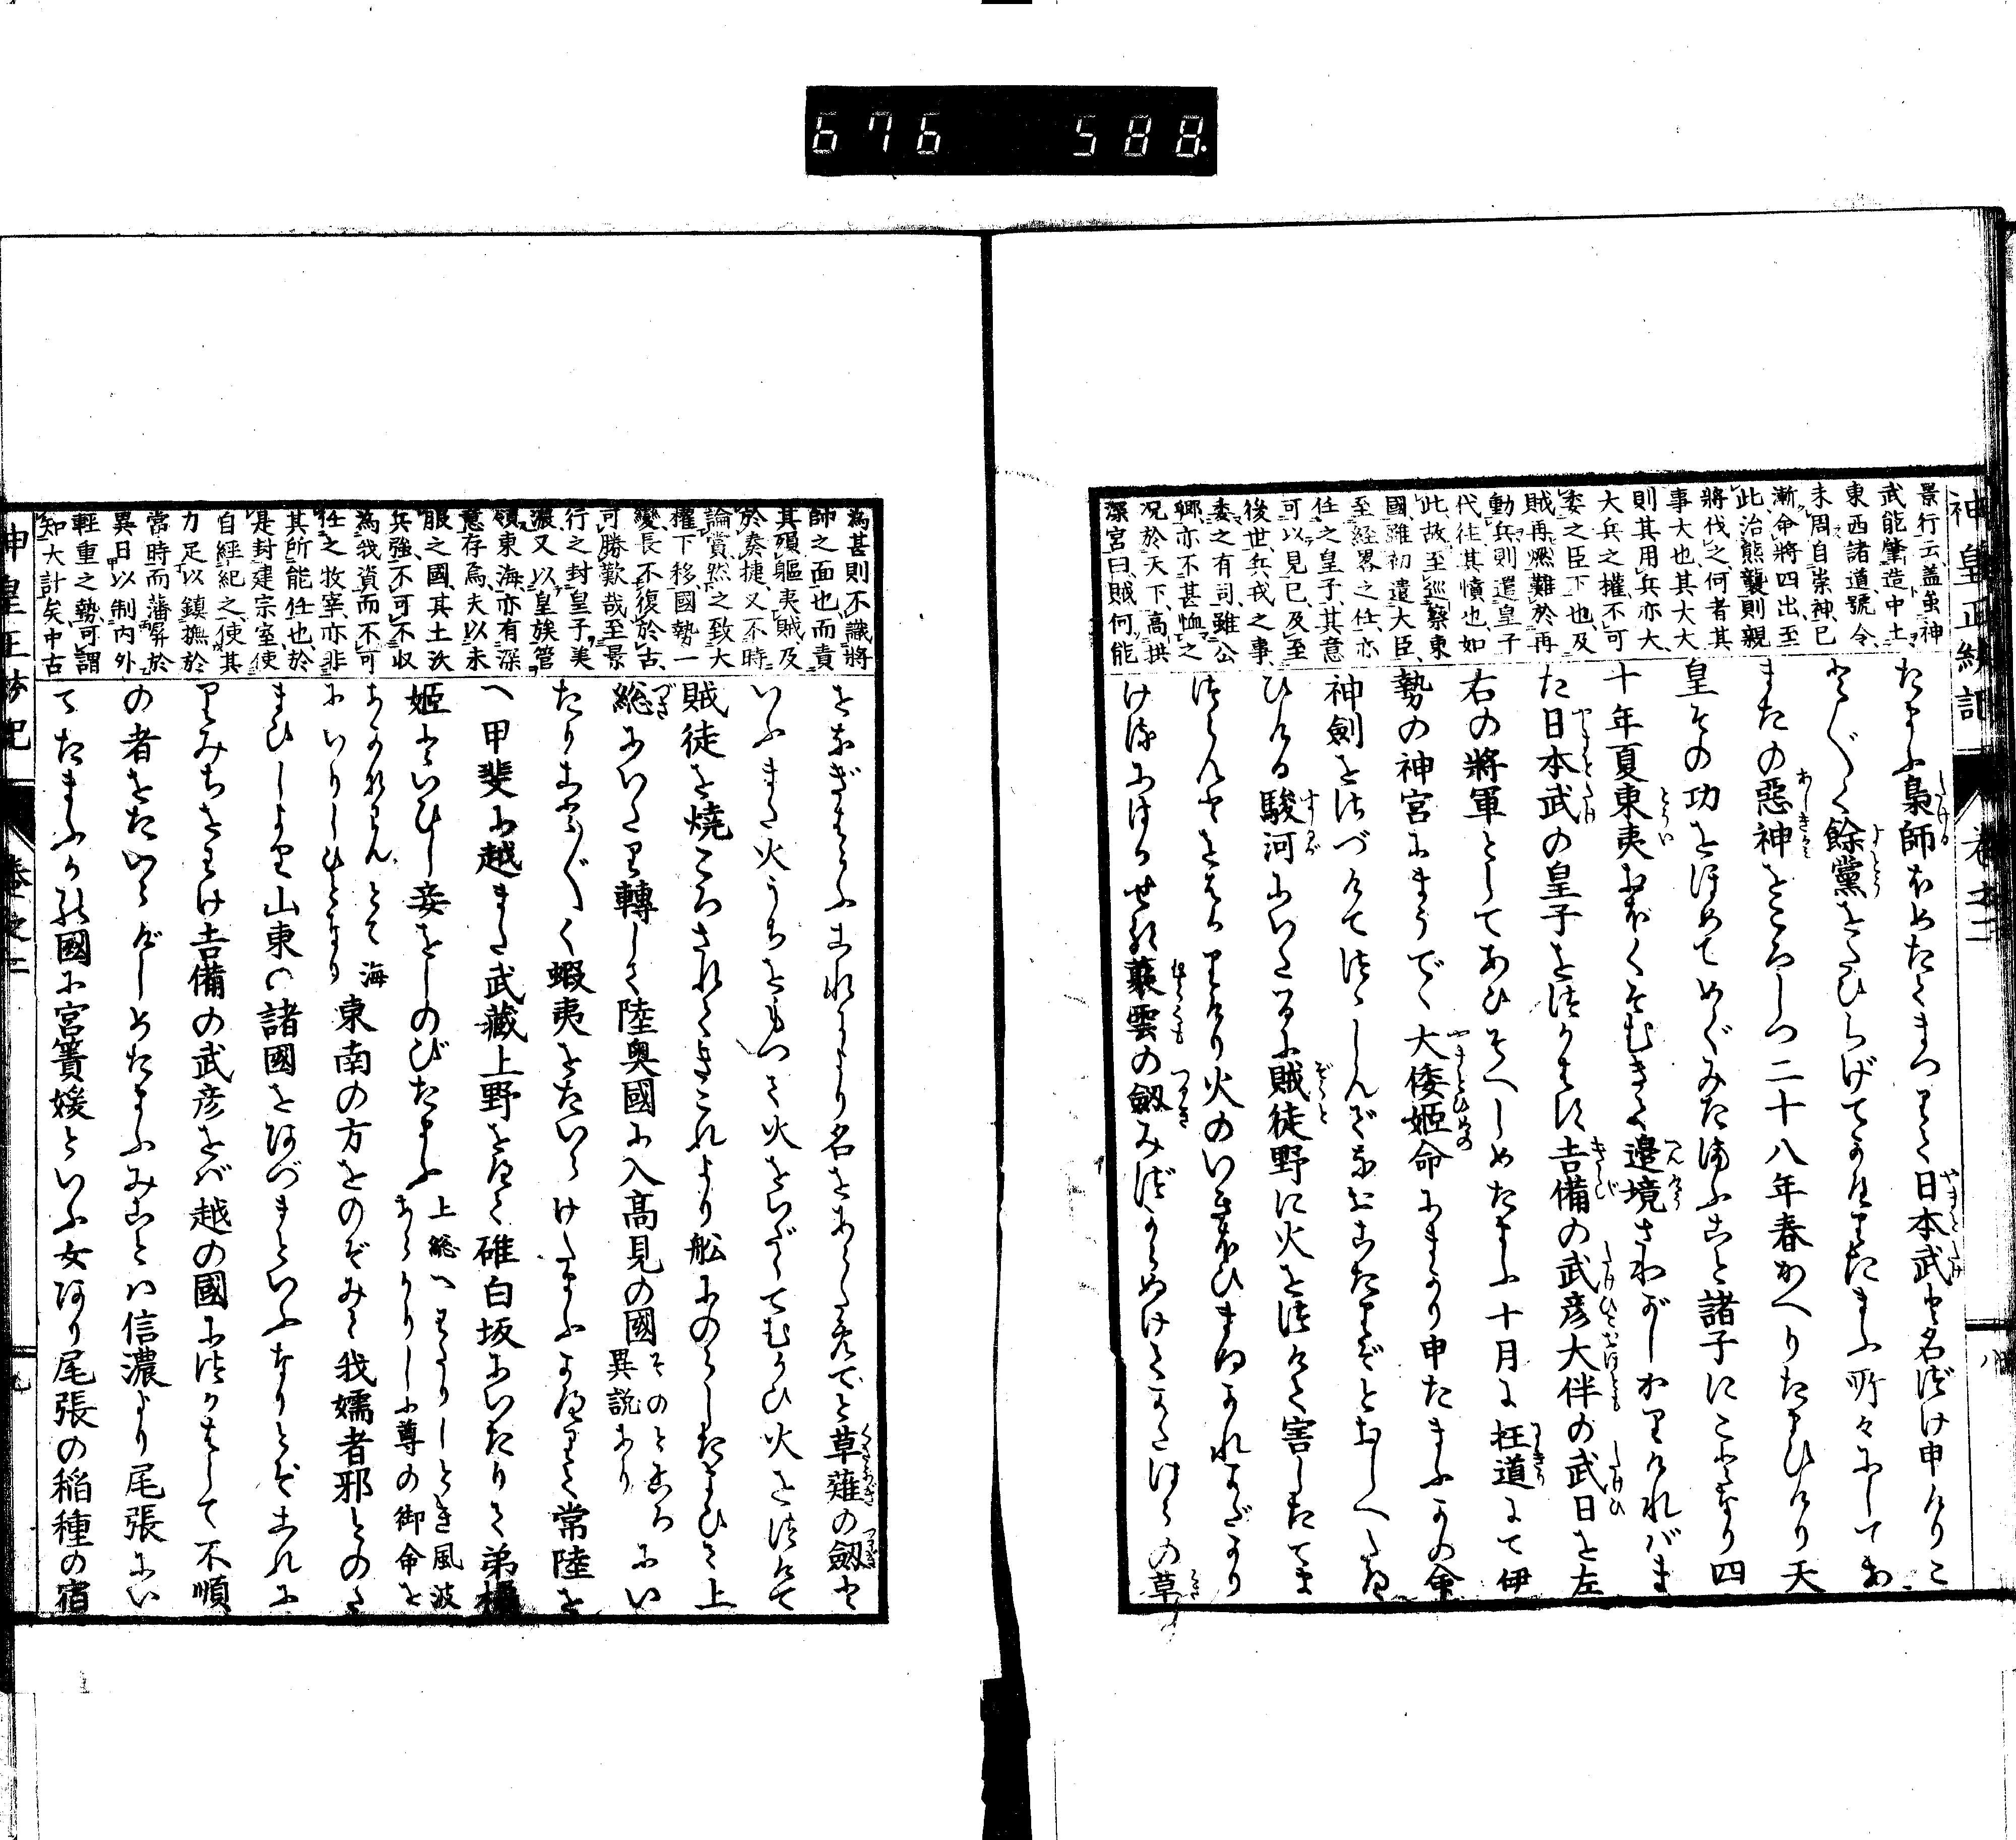 676 588.
神皇正統記
景行云盖虽神
武能肇造中土
東西諸道號令
未周自崇神已
漸命將四出至
此治熊襲則親
將伐之何者其
事大也其大大
則其用兵亦大
大兵之權不可
委之臣下也及
賊再燃難於再
動兵則遣皇子
代徃其憤也如
此故至巡察東
國雖初遣大臣
至經畧之任亦
任之皇子其意
可以見已及至
後世兵戎之事
委之有司雖公
卿亦不甚恤之
况於天下高拱
深宮曰賊何能
たまふ梟師ほめたてまつりて日本武と名づけ申けりこ
とごとく餘黨をたひらげてかへりたまふ所々にしてあ
またの惡神をころしつ二十八年春かへりたまひけり天
皇その功をほめてめぐみたまふこと諸子にことなり四
十年夏東夷おほくそむきて邊境さわがしかりければま
た日本武の皇子をつかはす吉備の武彦大伴の武日を左
右の將軍としてあひそへしめたまふ十月に枉道して伊
勢の神宮にまうで大倭姫命にまかり申たまふかの命
神劍をさづけてつゝしんでなおこたりぞとおしへたま
ひける駿河にいたるに賊徒野に火をつけて害したてま
つらんとをはかりけり火のいきほひまぬかれがたかり
けるにはかせる䕺雲の劔みづからぬけてかたはらの草
為甚則不識將
帥之面也而責
其碩軀夷賊及
於奏捷又不時
論賞然之致大
權下移國勢一
變長不復於古
可勝歎哉至景
行之封皇子美
濃又以皇族管
領東海亦有深
意存焉夫以未
服之國其土沃
兵強不可不収
為我資而不可
任之牧宰亦非
其所能任也於
是封建宗室使
自經紀之使其
力足以鎮撫於
常時而藩屏於
異日以制内外
輕重之勢可謂
知大計矣中古
をなぎはらふこれより名をあらためて草薙の劔と
いふまた火うちをもつて火をいだしてむかひ火をつけて
賊徒を燒ころされてきこれより舩にのらしたまひて上
総にいたり轉して陸奥國に入高見の國そのところ異説ありにい
たりことごとく蝦夷をたいらげたまふかへりて常陸を
へ甲斐に越また武藏上野をへて碓白坂にいたりて弟橘
姫といひし妾をしのびたまふ上総へわたりしとき風波あらかりしに尊の御命を
あがなはんとて海にいりしひとなり東南の方をのぞみて我嬬者邪とのた
まひしより山東の諸國をあづまといふなりとぞこれに
てみちをわけ吉備の武彦をば越の國につかはして不順
の者をたいらげしめたまふみことは信濃より尾張にい
でたまふかの國に宮簀媛といふ女あり尾張の稲種の宿